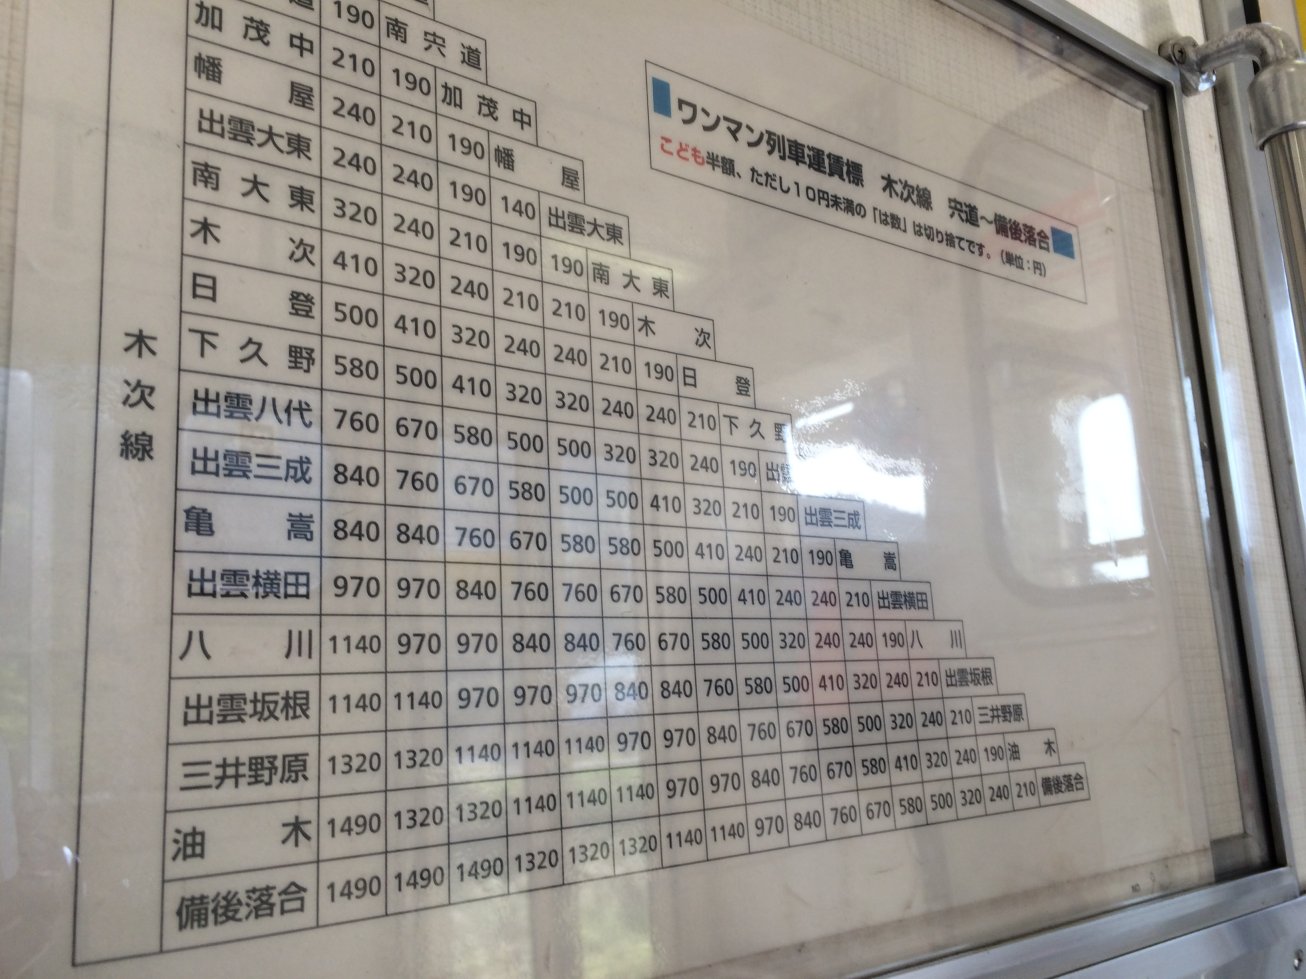 ワンマン列車運賃標 木次線 宍道～備後落合
こども半額、ただし10円未満の「は数」は切り捨てです。(単位：円)
木次線
道 190 南宍道
加茂中 210 190 加茂中
幡屋 240 210 190 幡屋
出雲大東 240 240 190 140 出雲大東
南大東 320 240 210 190 190 南大東
木次 410 320 240 210 210 190 木次
日登 500 410 320 240 240 210 190 日登
下久野 580 500 410 320 320 240 240 210 下久野
出雲八代 760 670 580 500 500 320 320 240 190 出雲
出雲三成 840 760 670 580 500 500 410 320 210 190 出雲三成
亀嵩 840 840 760 670 580 580 500 410 240 210 190 亀嵩
出雲横田 970 970 840 760 760 670 580 500 410 240 240 210 出雲横田
八川 1140 970 970 840 840 760 670 580 500 320 240 240 190 八川
出雲坂根 1140 1140 970 970 970 840 840 760 580 500 410 320 240 210 出雲坂根
三井野原 1320 1320 1140 1140 1140 970 970 840 760 670 580 500 320 240 210 三井野原
油木 1490 1320 1320 1140 1140 1140 970 970 840 760 670 580 410 320 240 190 油木
備後落合 1490 1490 1490 1320 1320 1320 1140 1140 970 840 760 670 580 500 320 240 210 備後落合